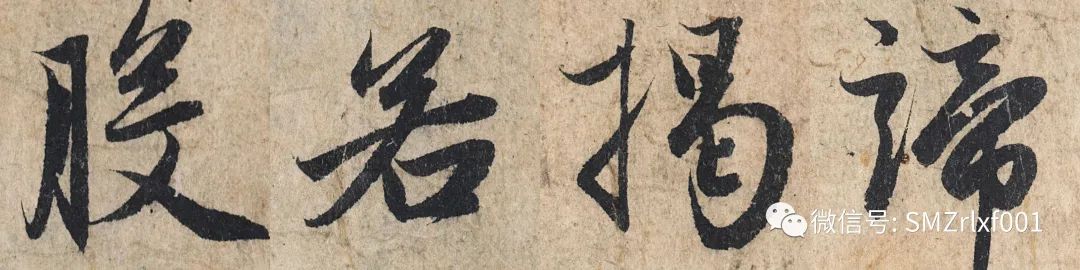 般若揭諦
微信号: SMZrlxf001